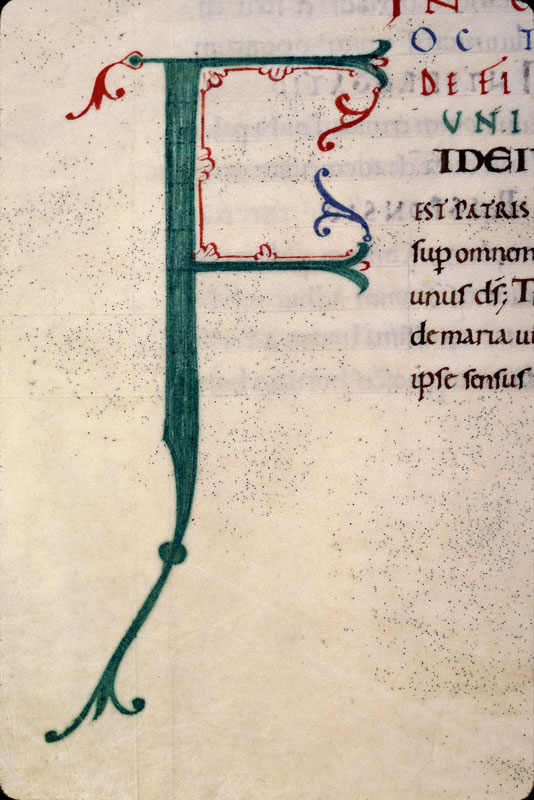 IN C
OCT
DE FI
VNI
F IDEI
EST PATRIS
sup omnem
unus ds; T
de maria ui
ipse sensus